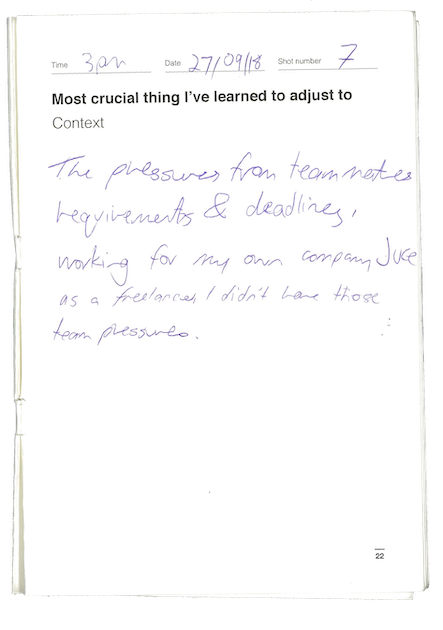 Time 3pm Date 27/09/18 Shot number 7
Most crucial thing I've learned to adjust to
Context
The pressures from teammates
requirements & deadlines,
working for my own company Juce
as a freelancer I didn't have those
team pressures.
22